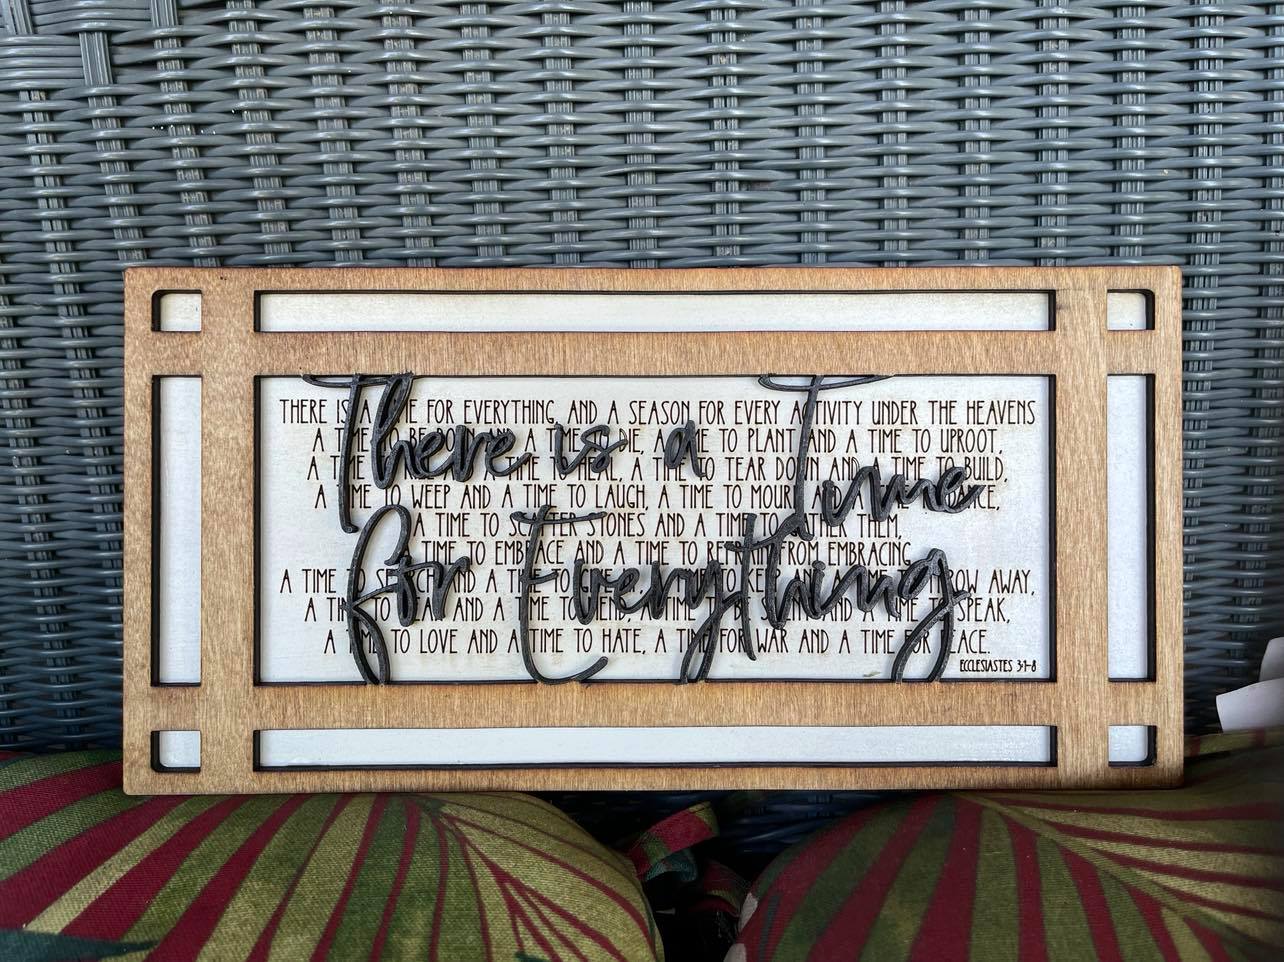 There is a Time
for Everything
THERE IS A TIME FOR EVERYTHING, AND A SEASON FOR EVERY ACTIVITY UNDER THE HEAVENS
A TIME TO BE BORN AND A TIME TO DIE, A TIME TO PLANT AND A TIME TO UPROOT,
A TIME TO KILL AND A TIME TO HEAL, A TIME TO TEAR DOWN AND A TIME TO BUILD,
A TIME TO WEEP AND A TIME TO LAUGH, A TIME TO MOURN AND A TIME TO DANCE,
A TIME TO SCATTER STONES AND A TIME TO GATHER THEM,
A TIME TO EMBRACE AND A TIME TO REFRAIN FROM EMBRACING,
A TIME TO SEARCH AND A TIME TO GIVE UP, A TIME TO KEEP AND A TIME TO THROW AWAY,
A TIME TO TEAR AND A TIME TO MEND, A TIME TO BE SILENT AND A TIME TO SPEAK,
A TIME TO LOVE AND A TIME TO HATE, A TIME FOR WAR AND A TIME FOR PEACE.
ECCLESIASTES 3:1-8